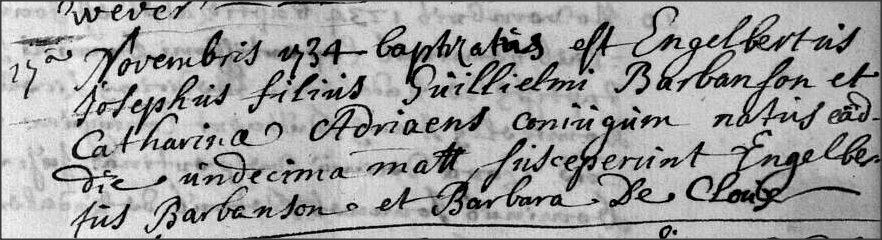 wever
17a Novembris 1734 baptizatus est Engelbertus
Josephus filius Guillielmi Barbanson et
Catharina Adriaens coniugum natus ead-
die undecima matt, susceperunt Engelber-
tus Barbanson et Barbara De